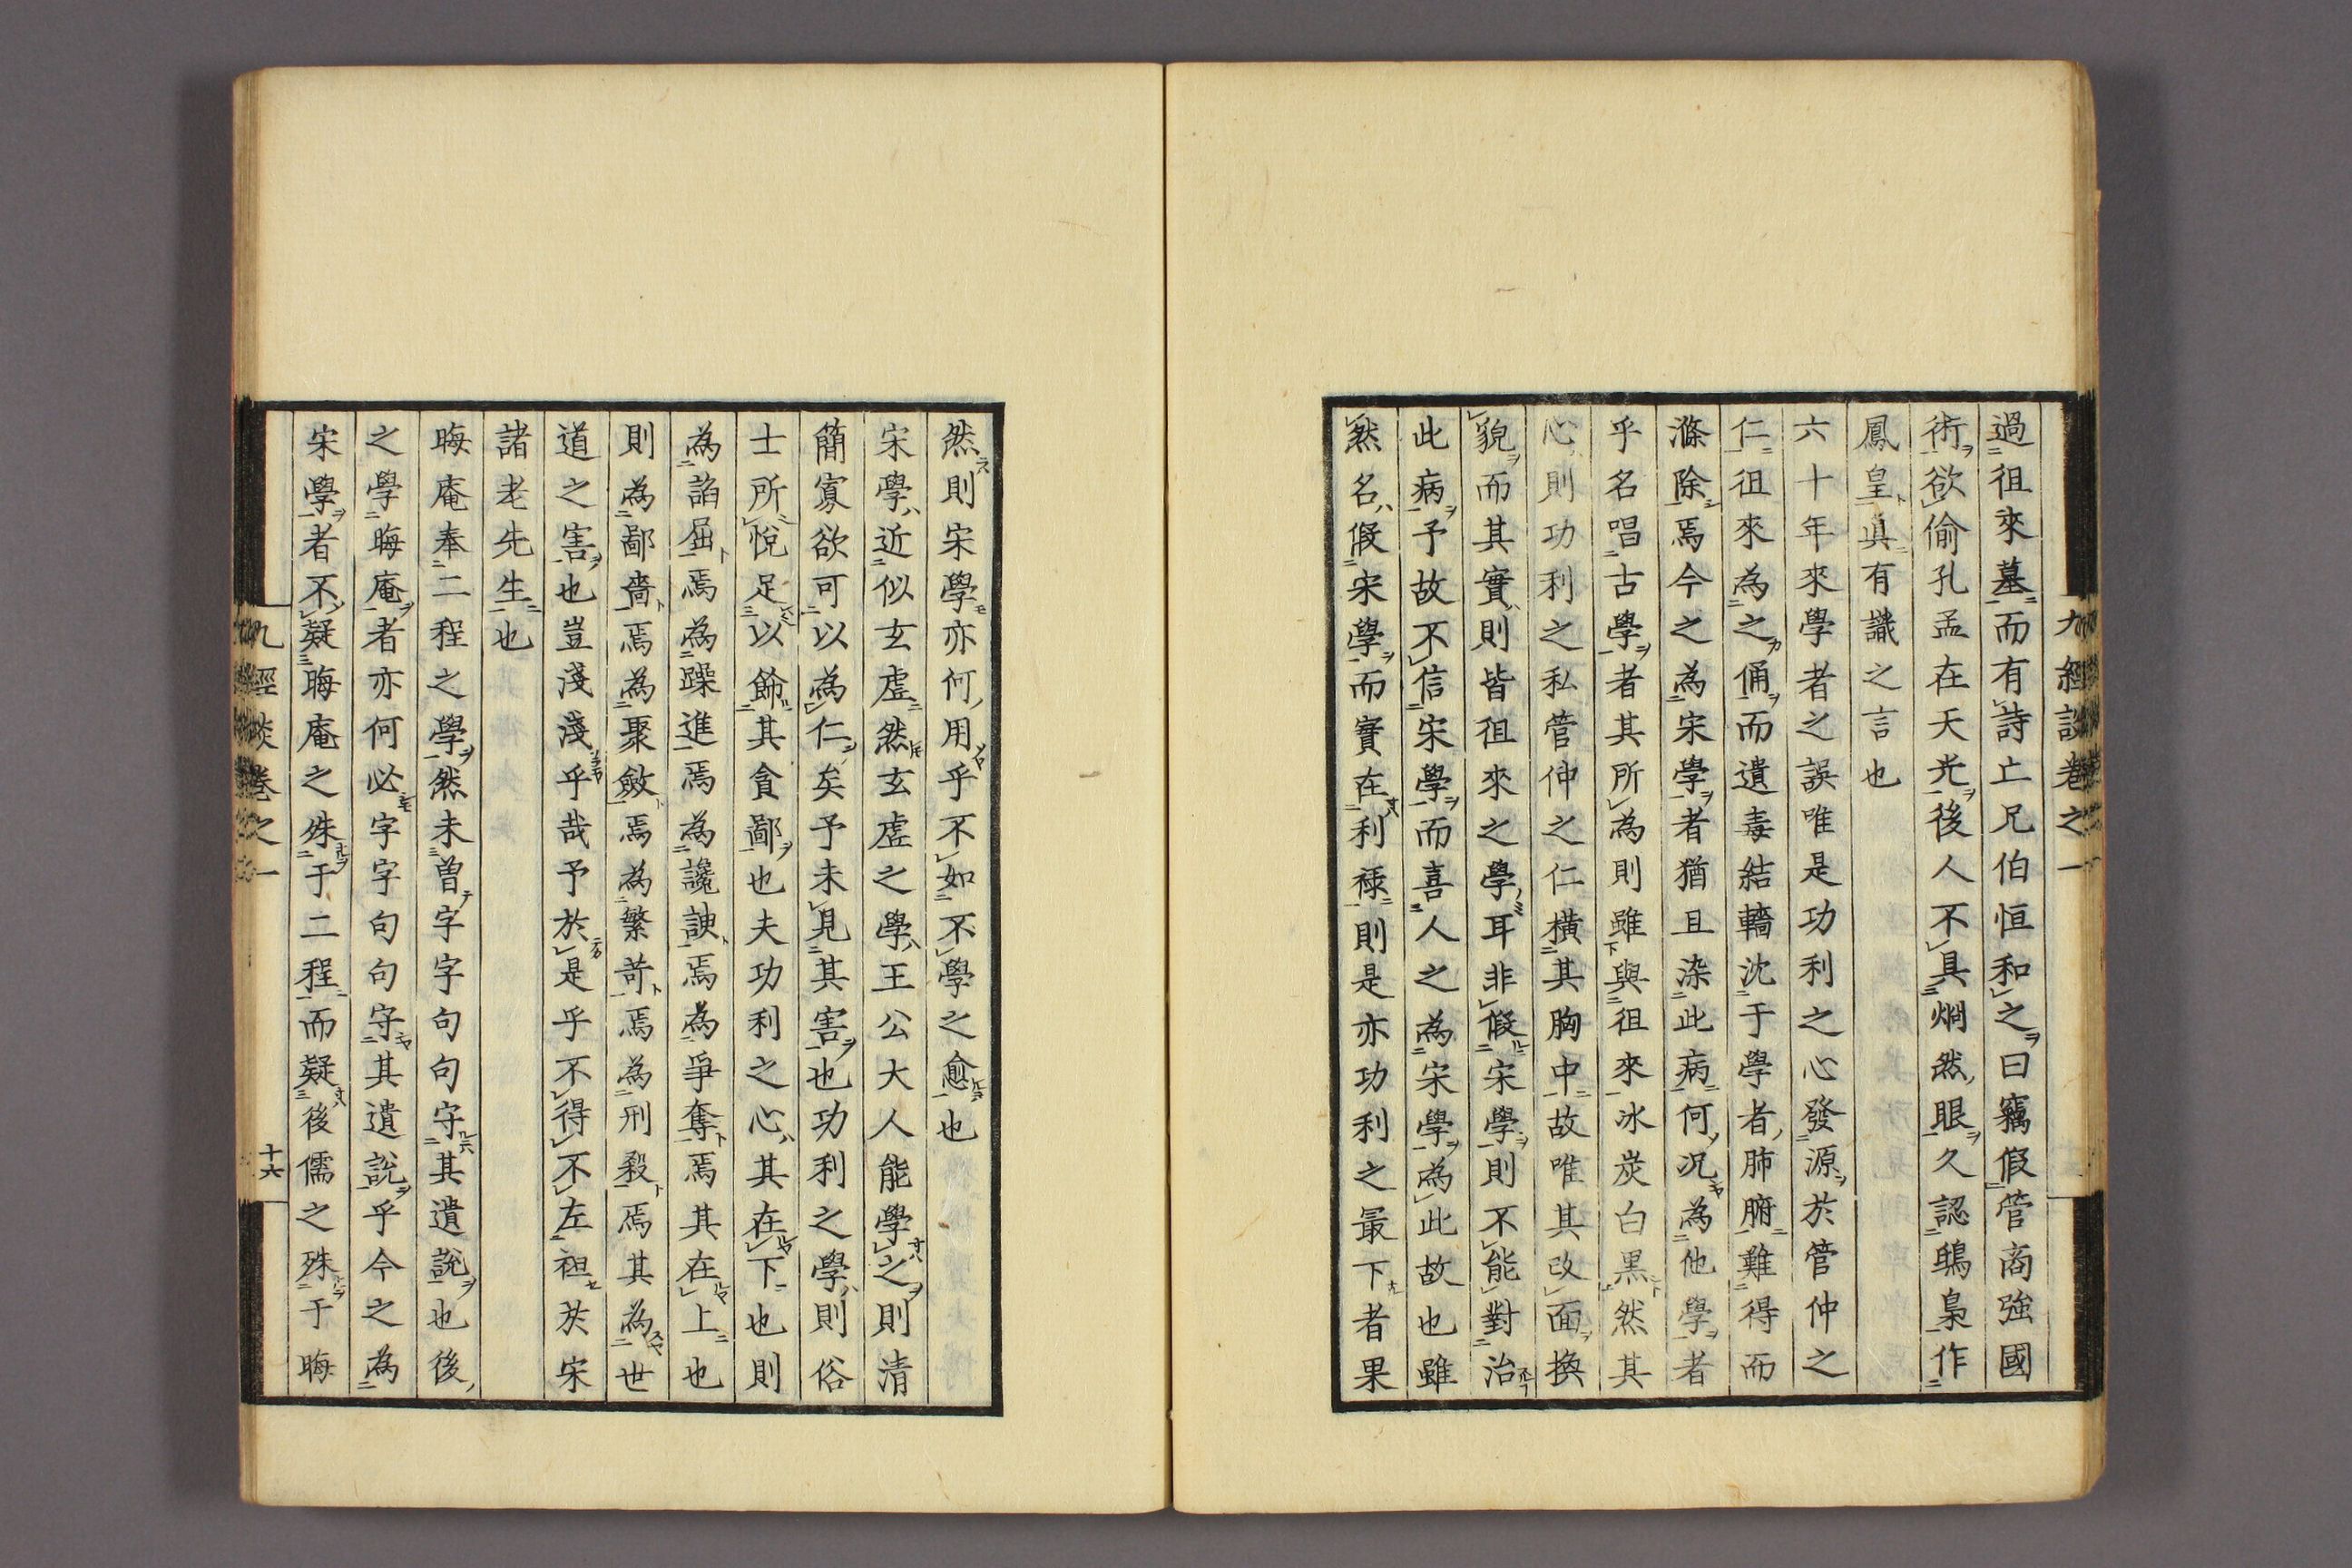 九經談卷之一
過徂來墓而有詩亡兄伯恒和之曰竊假管商強國
術欲偷孔孟在天光後人不具烱然眼久認鴟梟作
鳳皇眞有識之言也
六十年來學者之誤唯是功利之心發源於管仲之
仁徂來為之俑而遺毒結轖沈于學者肺腑難得而
滌除焉今之為宋學者猶且染此病何况為他學者
乎名唱古學者其所為則雖與徂來冰炭白黑然其
心則功利之私管仲之仁橫其胸中故唯其改面換
貌而其實則皆徂來之學耳非假宋學則不能對治
此病予故不信宋學而喜人之為宋學為此故也雖
然名假宋學而實在利祿則是亦功利之最下者果
然則宋學亦何用乎不如不學之愈也
宋學近似玄虛然玄虛之學王公大人能學之則清
簡寡欲可以為仁矣予未見其害也功利之學則俗
士所悅足以餙其貪鄙也夫功利之心其在下也則
為諂屈焉為躁進焉為讒諛焉為爭奪焉其在上也
則為鄙嗇焉為聚斂焉為繁苛焉為刑殺焉其為世
道之害也豈淺淺乎哉予於是乎不得不左袒於宋
諸老先生也
晦庵奉二程之學然未曽字字句句守其遺說也後
之學晦庵者亦何必字字句句守其遺說乎今之為
宋學者不疑晦庵之殊于二程而疑後儒之殊于晦
九經談卷之一
十六